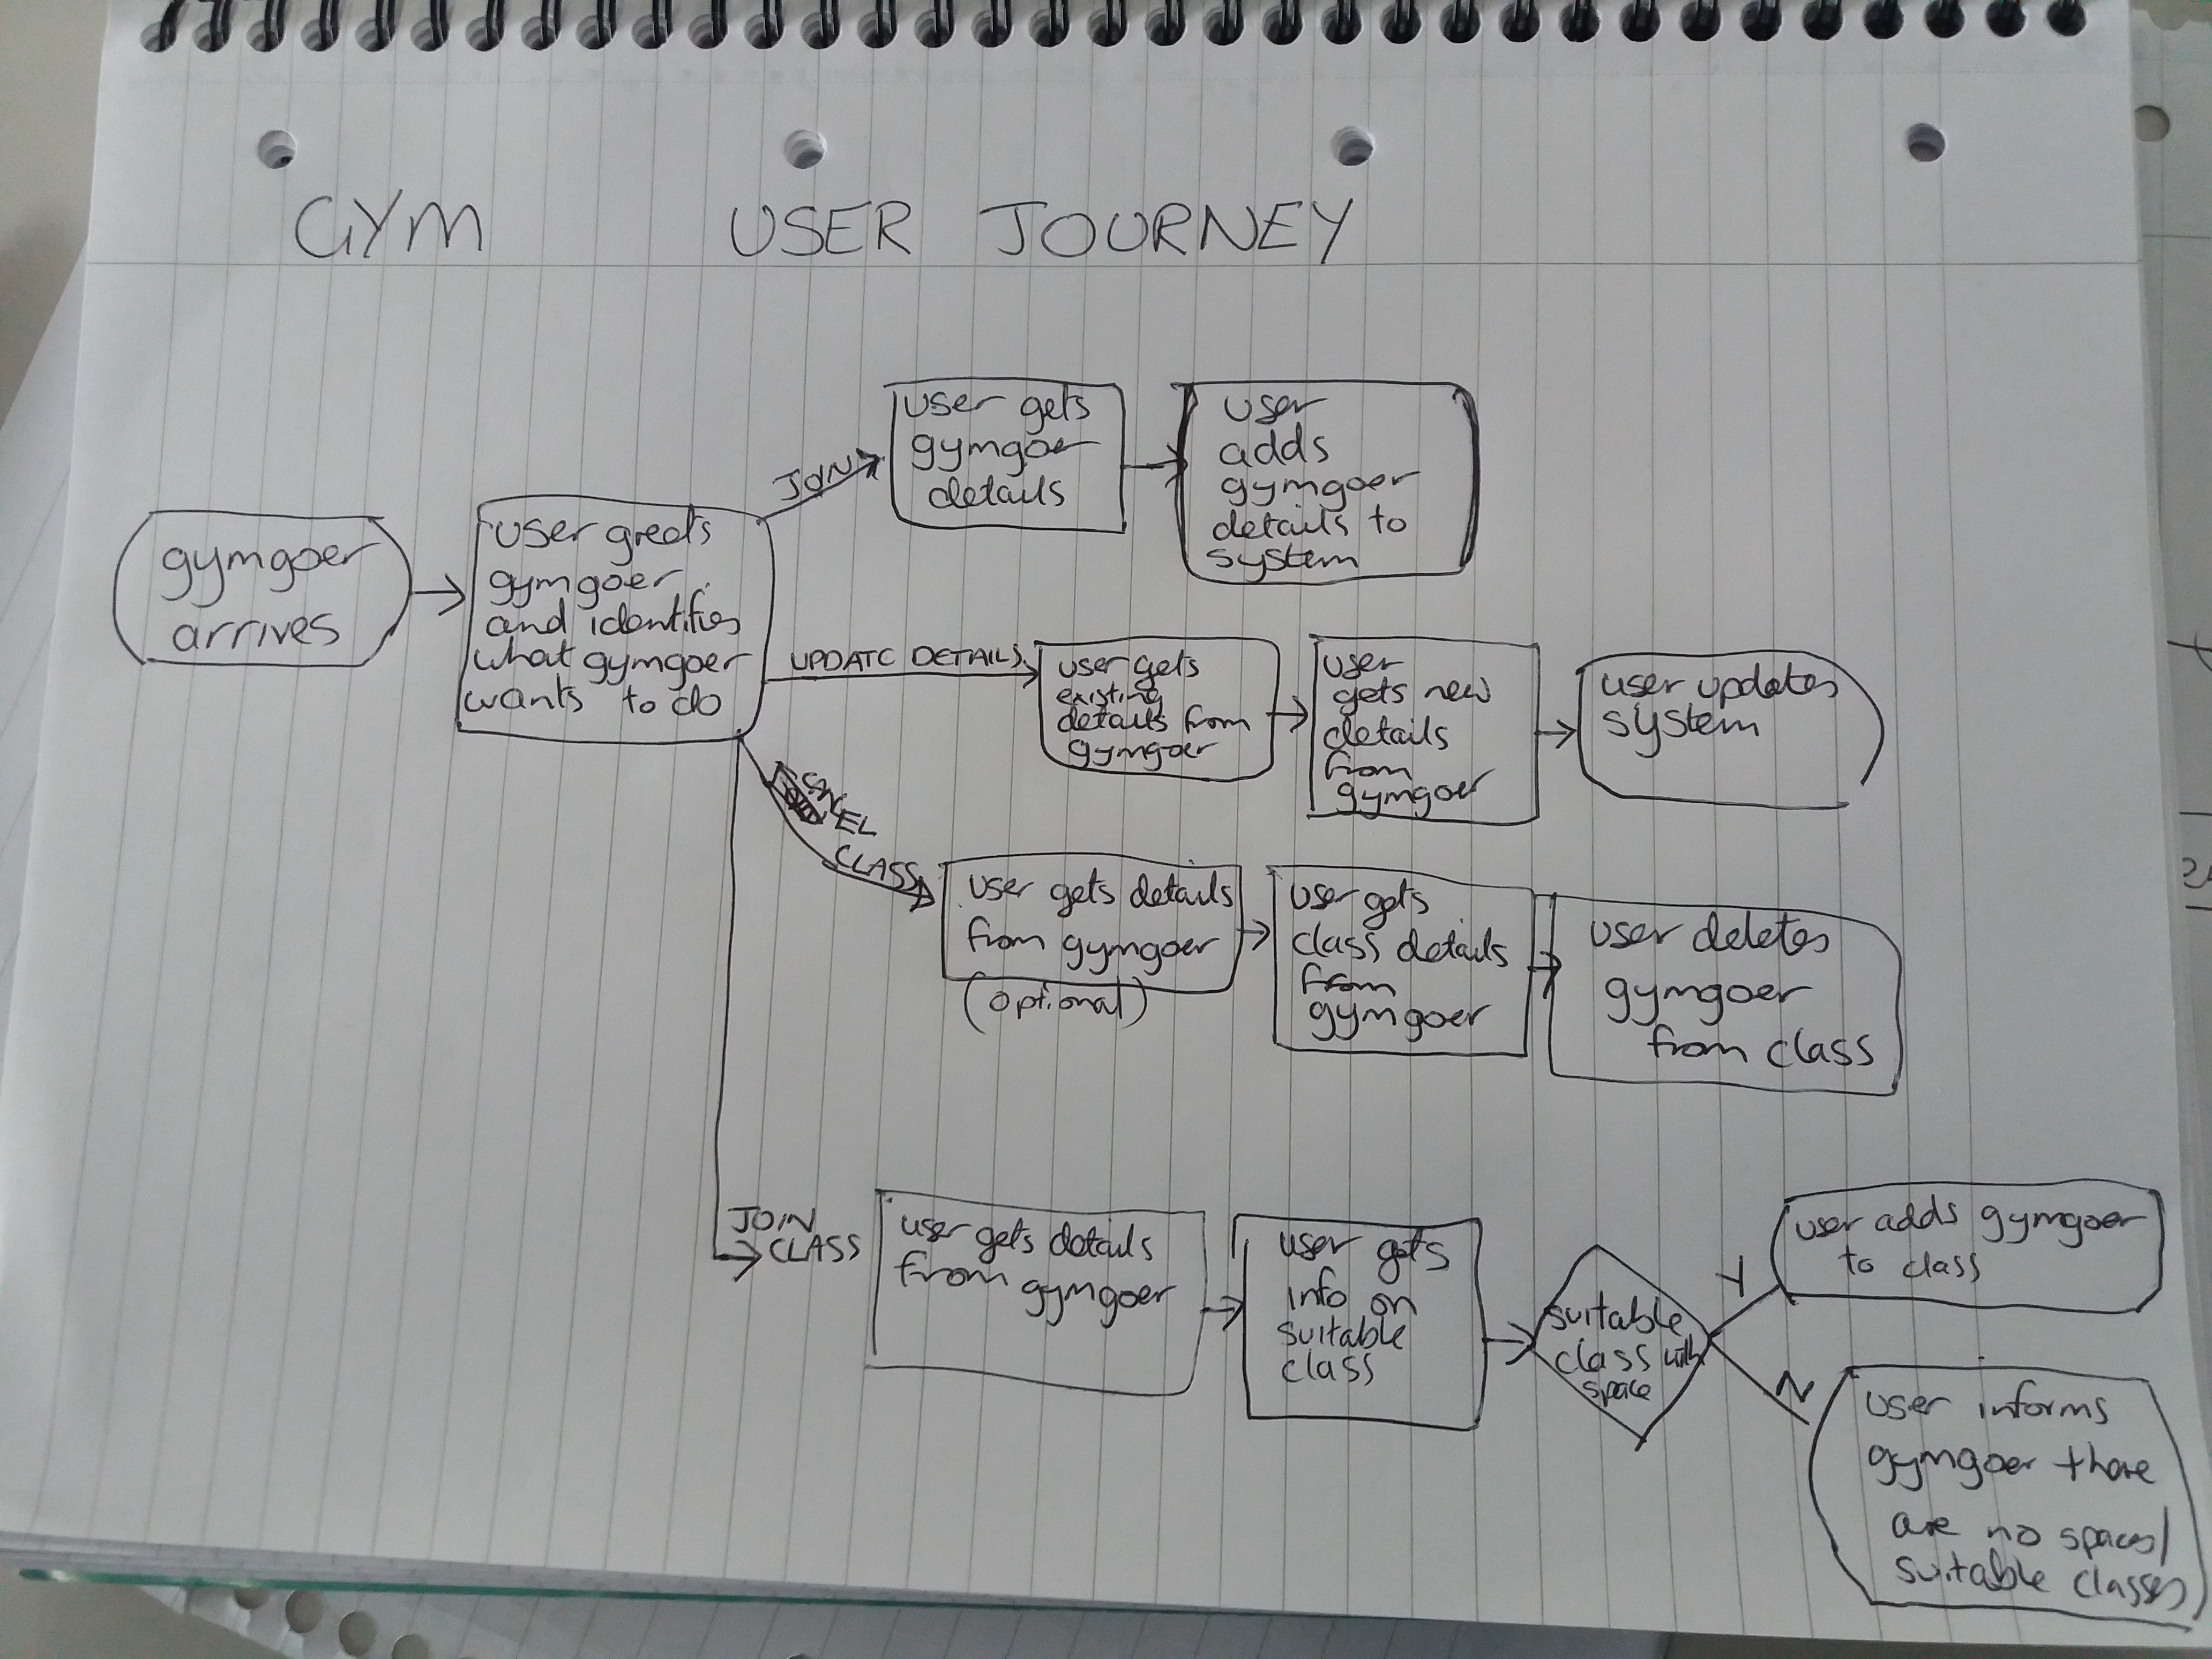 GYM USER JOURNEY
gymgoer
arrives
user greets
gymgoer
and identifies
what gymgoer
wants to do
JOIN
user gets
gymgoer
details
user
adds
gymgoer
details to
system
UPDATE DETAILS
user gets
existing
details from
gymgoer
user
gets new
details
from
gymgoer
user updates
system
CANCEL
CLASS
user gets details
from gymgoer
(optional)
user gets
class details
from
gymgoer
user deletes
gymgoer
from class
JOIN
CLASS
user gets details
from gymgoer
user gets
info on
suitable
class
suitable
class with
space
Y
user adds gymgoer
to class
N
user informs
gymgoer there
are no spaces/
suitable classes